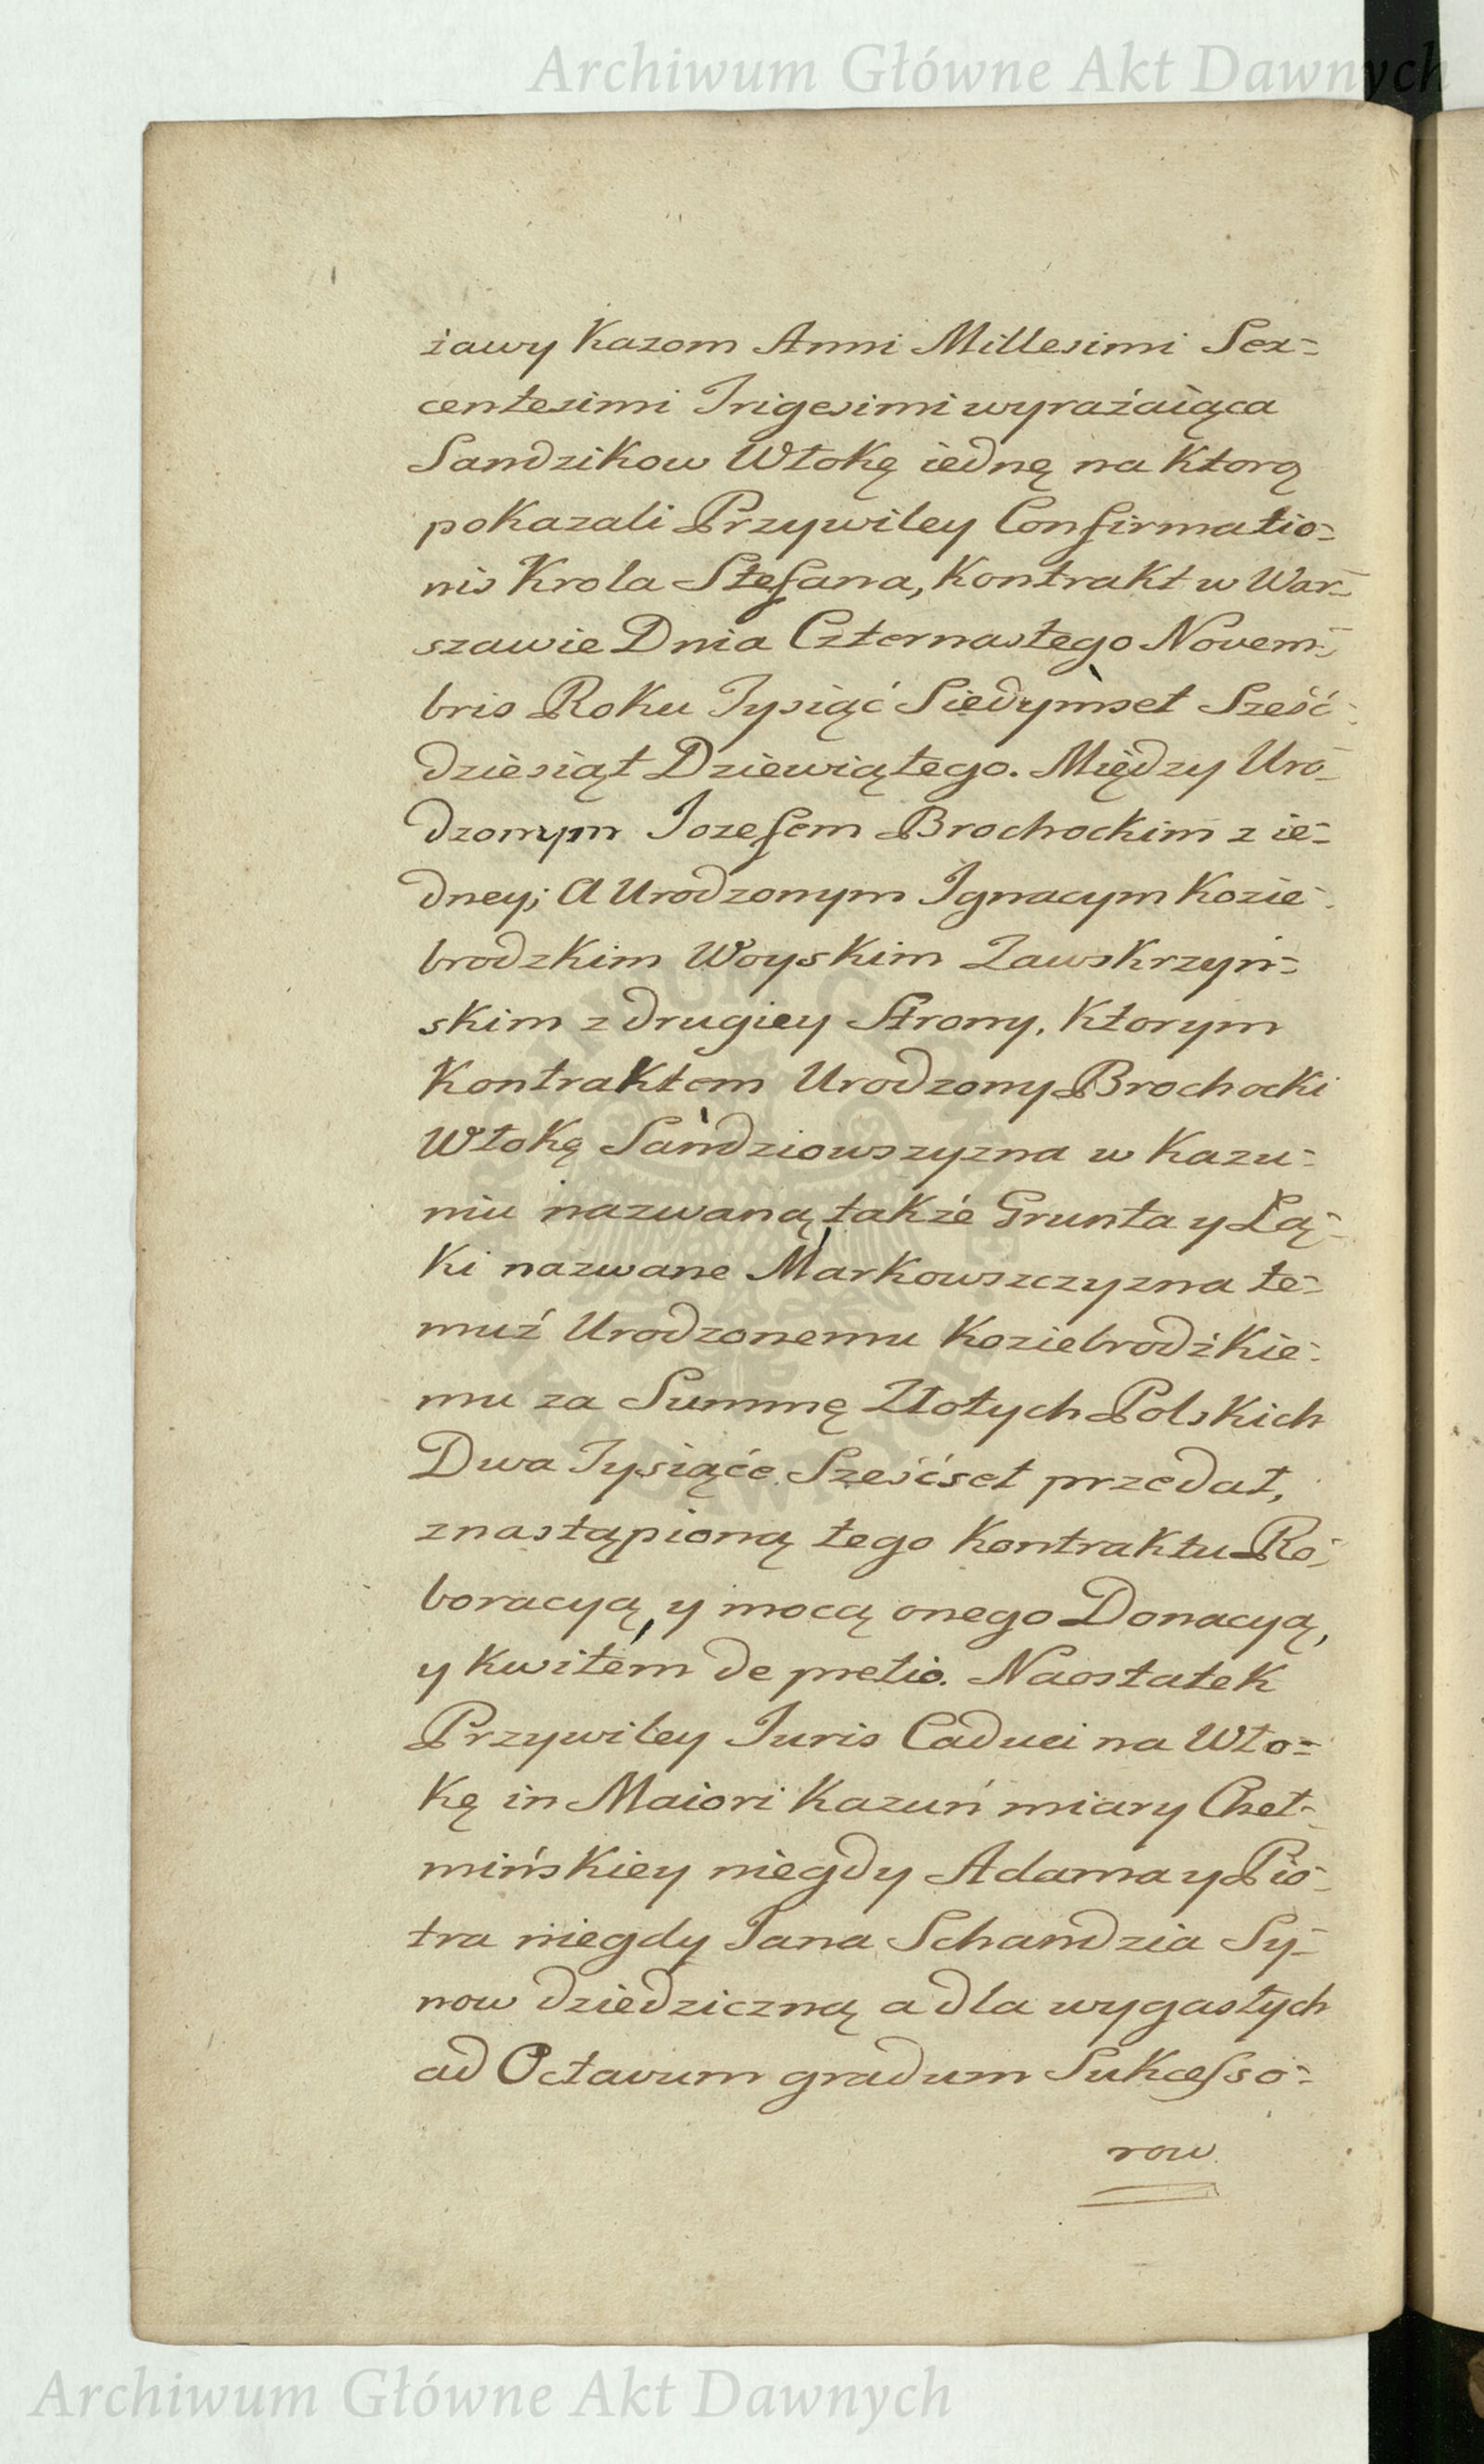 Archiwum Główne Akt Dawnych
żawy Kazom Anni Millesimi Sex=
centesimi Trigesimi wyrażaiąca
Sandzikow Włokę iednę na ktorą
pokazali Przywiley Confirmatio=
nis Krola Stefana, Kontrakt w War=
szawie Dnia Czternastego Novem=
bris Roku Tysiąć Siedymset Sześć=
dziesiąt Dziewiątego. Między Uro=
dzonym Jozefem Brochockim z ie=
dney; A Urodzonym Ignacym Kozie=
brodzkim Woyskim Zawskrzyń=
skim z drugiey Strony, Ktorym
Kontraktem Urodzony Brochocki
Włokę Sandziowszyzna w Kazu=
niu nazwaną także Grunta y Łą=
ki nazwane Markowszczyzna te=
muż Urodzonemu Koziebrodzkie=
mu za Summę Złotych Polskich
Dwa Tysiące Sześćset przedał,
znastąpioną tego Kontraktu Ro=
boracyą, y mocą onego Donacyą,
y kwitem de pretio. Naostatek
Przywiley Juris Caduci na Wło=
kę in Maiori Kazuń miary Cheł=
mińskiey niegdy Adama y Pio=
tra niegdy Jana Schandzia Sy=
now dziedziczną a dla wygasłych
ad Octavum gradum Sukcesso=
row
Archiwum Główne Akt Dawnych